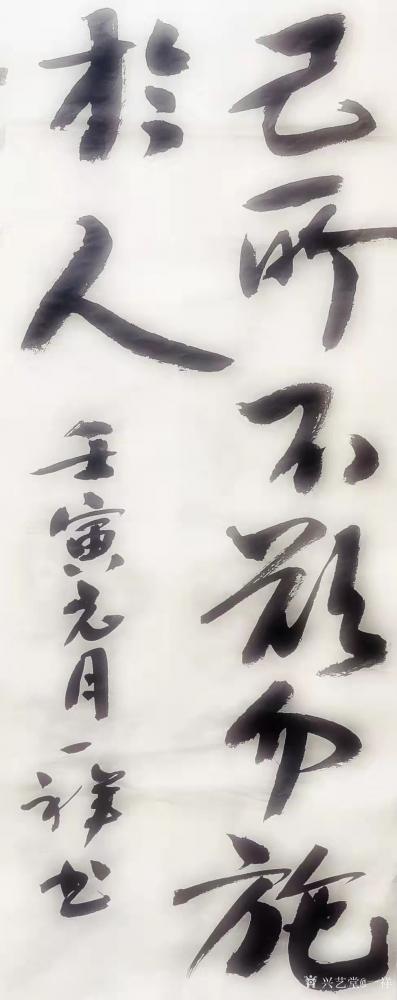 己所不欲勿施
於人
壬寅元月一祥书
兴艺堂@一祥